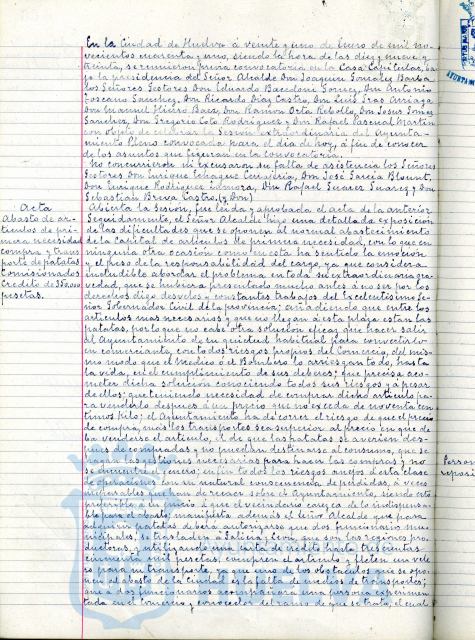 En la Ciudad de Huelva á veinte y uno de Enero de mil no-
vecientos cuarenta y uno, siendo la hora de las diez y nueve y
treinta, se reunieron previa convocatoria en la Casa Capitular, ba-
jo la presidencia del Señor Alcalde Don Joaquin Gonzalez Barba
los Señores Gestores Don Eduardo Don Antonio
Toscano Sanchez, Don Ricardo Diaz Castro, Don Luis
Don Manuel Baez, Don Ramon Orta Rebollo, Don Jesus Gomez
Sanchez, Don Gregorio Rodriguez y Don Rafael Pascual Martin
con objeto de celebrar la Sesión extraordinaria del Ayunta-
miento Pleno convocada para el dia de hoy, á fin de conocer
de los asuntos que figuran en la Convocatoria.
No concurrieron ni excusaron su falta de asistencia los Señores
Gestores Don Enrique Don José Garcia
Don Enrique Rodriguez Don Rafael Suarez Suarez y Don
Sebastián Castro,
Abierta la Sesión, fue leida y aprobada el acta de la anterior
Acta
Abasto de ar-
ticulos de pri-
mera necesidad
compra y trans-
porte de patatas
Comisionados
Credito de
pesetas.
Seguidamente, el Señor Alcalde hizo una detallada exposición
de las dificultades que se oponen al normal abastecimiento
de la Capital de articulos de primera necesidad, con lo que en
ninguna otra ocasión como en esta ha sentido la emoción
y el peso de la responsabilidad del cargo, ya que considera
includible abordar el problema en toda su extraordinaria gra-
vedad, que se hubiera presentado mucho antes á no ser por los
desvelos y constantes trabajos del Excelentisimo Se-
ñor Gobernador Civil de la provincia; añadiendo que entre los
articulos mas necesarios y que no llegan á esta plaza estan las
patatas, por lo que no cabe otra solución eficaz que hacer salir
al Ayuntamiento de su quietud habitual para convertirlo
en comerciante, con todos riesgos propios del Comercio, del mis-
mo modo que el medico ó el Bombero lo arriesgan todo, hasta
la vida, en el cumplimiento de sus deberes; que precisa aco-
meter dicha solución conociendo todos sus riesgos y á pesar
de ellos; que teniendo necesidad de comprar dicho articulo pa-
ra venderlo despues á un precio que no exceda de noventa cen-
timos kilo; el Ayuntamiento ha de correr el riesgo de que el precio
de compra, mas los transportes sea superior al precio en que de-
ba venderse el articulo, el de que las patatas se averien des-
pues de compradas y no puedan destinarse al consumo, que se
hagan las gestiones necesarias para hacer las compras y no
se encuentre genero; en fin todos los riesgos anejos á esta clase
de operaciones con su natural consecuencia de perdidas, á veces
que han de recaer sobre el Ayuntamiento, siendo esto
preferible á su juicio á que el vecindario carezca de lo indispensa-
ble para el abasto; manifiesta ademas el Señor Alcalde que para
adquirir patatas deberá autorizarse que dos funcionarios mu-
nicipales, se trasladen á Galicia y León, que son las regiones pro-
ductoras, y utilizando una carta de credito hasta trescientas
cincuenta mil pesetas, compren el articulo y fleten un vele-
ro para su transporte, ya que uno de los obstaculos que se opo-
nen al abasto de la Ciudad es la falta de medios de transportes;
que á dos funcionarios acompañara una persona experimen-
tada en el Comercio y conocedor del ramo de que se trata, el cual
Person
reposi
AYUNTAM